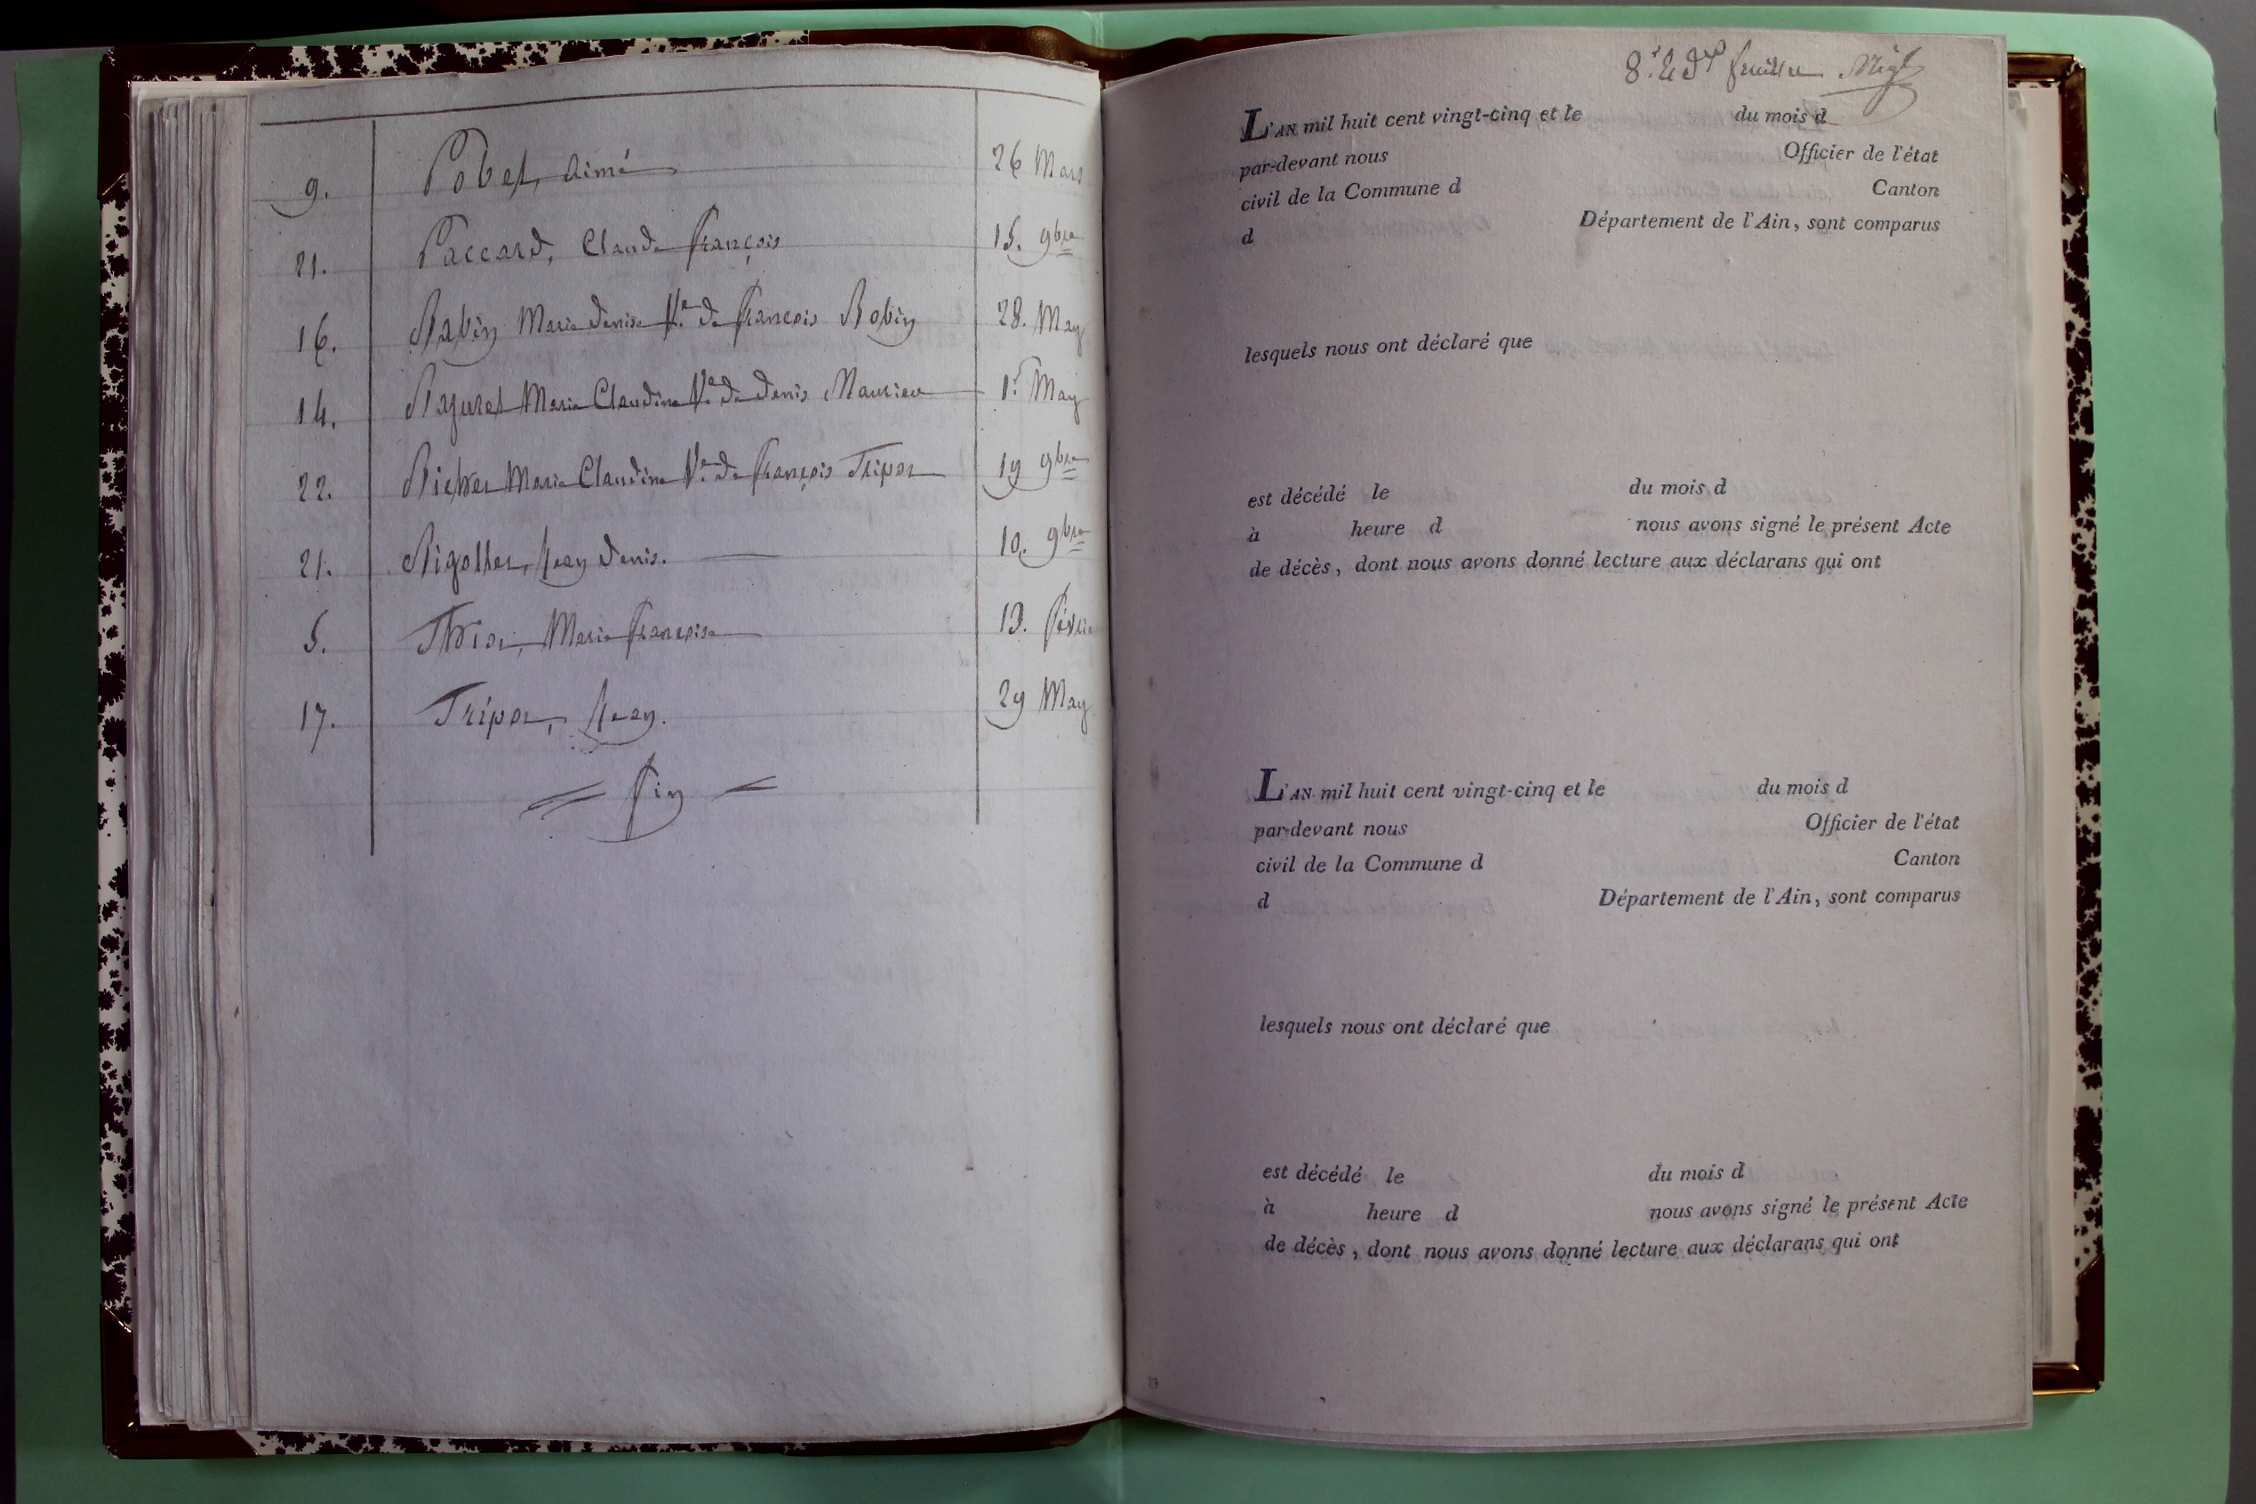 9. Pobel, Aimé 26 Mars
21. Paccard, Claude François 15. 9bre
16. Rabin Marie Denise Ve de François Robin 28. May
14. Marie Claudine Ve de Denis 1r May
22. Marie Claudine Ve de François Tripoz 19 9bre
21. Jean Denis. 10. 9bre
5. Marie Françoise 13. Février
17. Tripoz, Jean. 29 May
Fin
8e et feuillet
L'AN mil huit cent vingt-cinq et le du mois d
par-devant nous Officier de l'état
civil de la Commune d Canton
d Département de l'Ain, sont comparus
lesquels nous ont déclaré que
est décédé le du mois d
à heure d nous avons signé le présent Acte
de décès, dont nous avons donné lecture aux déclarans qui ont
L'AN mil huit cent vingt-cinq et le du mois d
par-devant nous Officier de l'état
civil de la Commune d Canton
d Département de l'Ain, sont comparus
lesquels nous ont déclaré que
est décédé le du mois d
à heure d nous avons signé le présent Acte
de décès, dont nous avons donné lecture aux déclarans qui ont